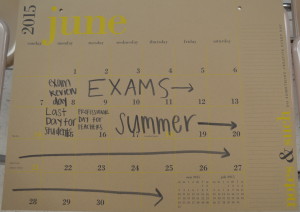 2015
june
sunday monday tuesday wednesday thursday friday saturday
1 2 3 4 5 6
exam
review
day
EXAMS →
7 8 9 10 11 12 13
Last
Day for
students
Professional
Day for
teachers
summer →
19 20
22 23 24 25 26 27
28 29 30
notes & such